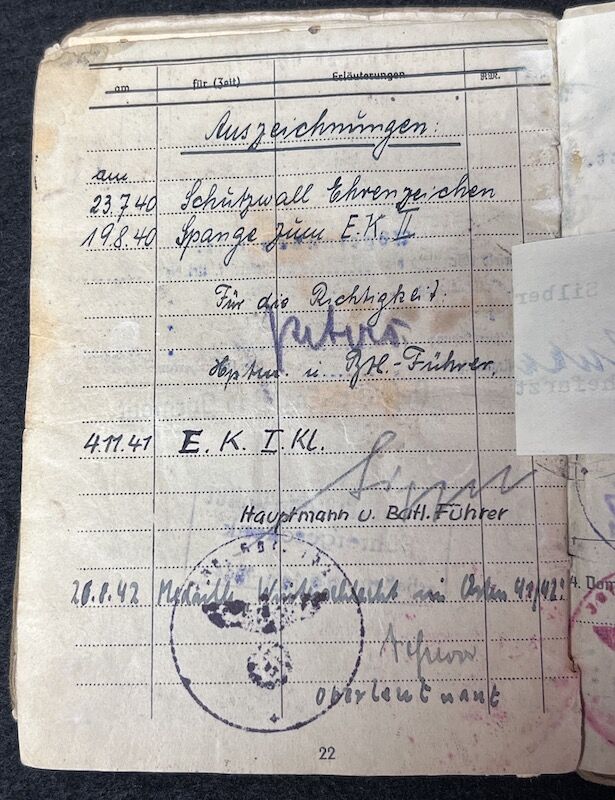 am für (Zeit) Erläuterungen RM.
Auszeichnungen:
am
23.7.40 Schutzwall Ehrenzeichen
19.8.40 Spange zum E.K. II
Für die Richtigkeit.
Hptm. u. Btl.-Führer,
4.11.41 E. K. I. Kl.
Hauptmann u. Batl. Führer
Medaille Winterschlacht im Osten 41/42.
Oberleutnant
22
Silber